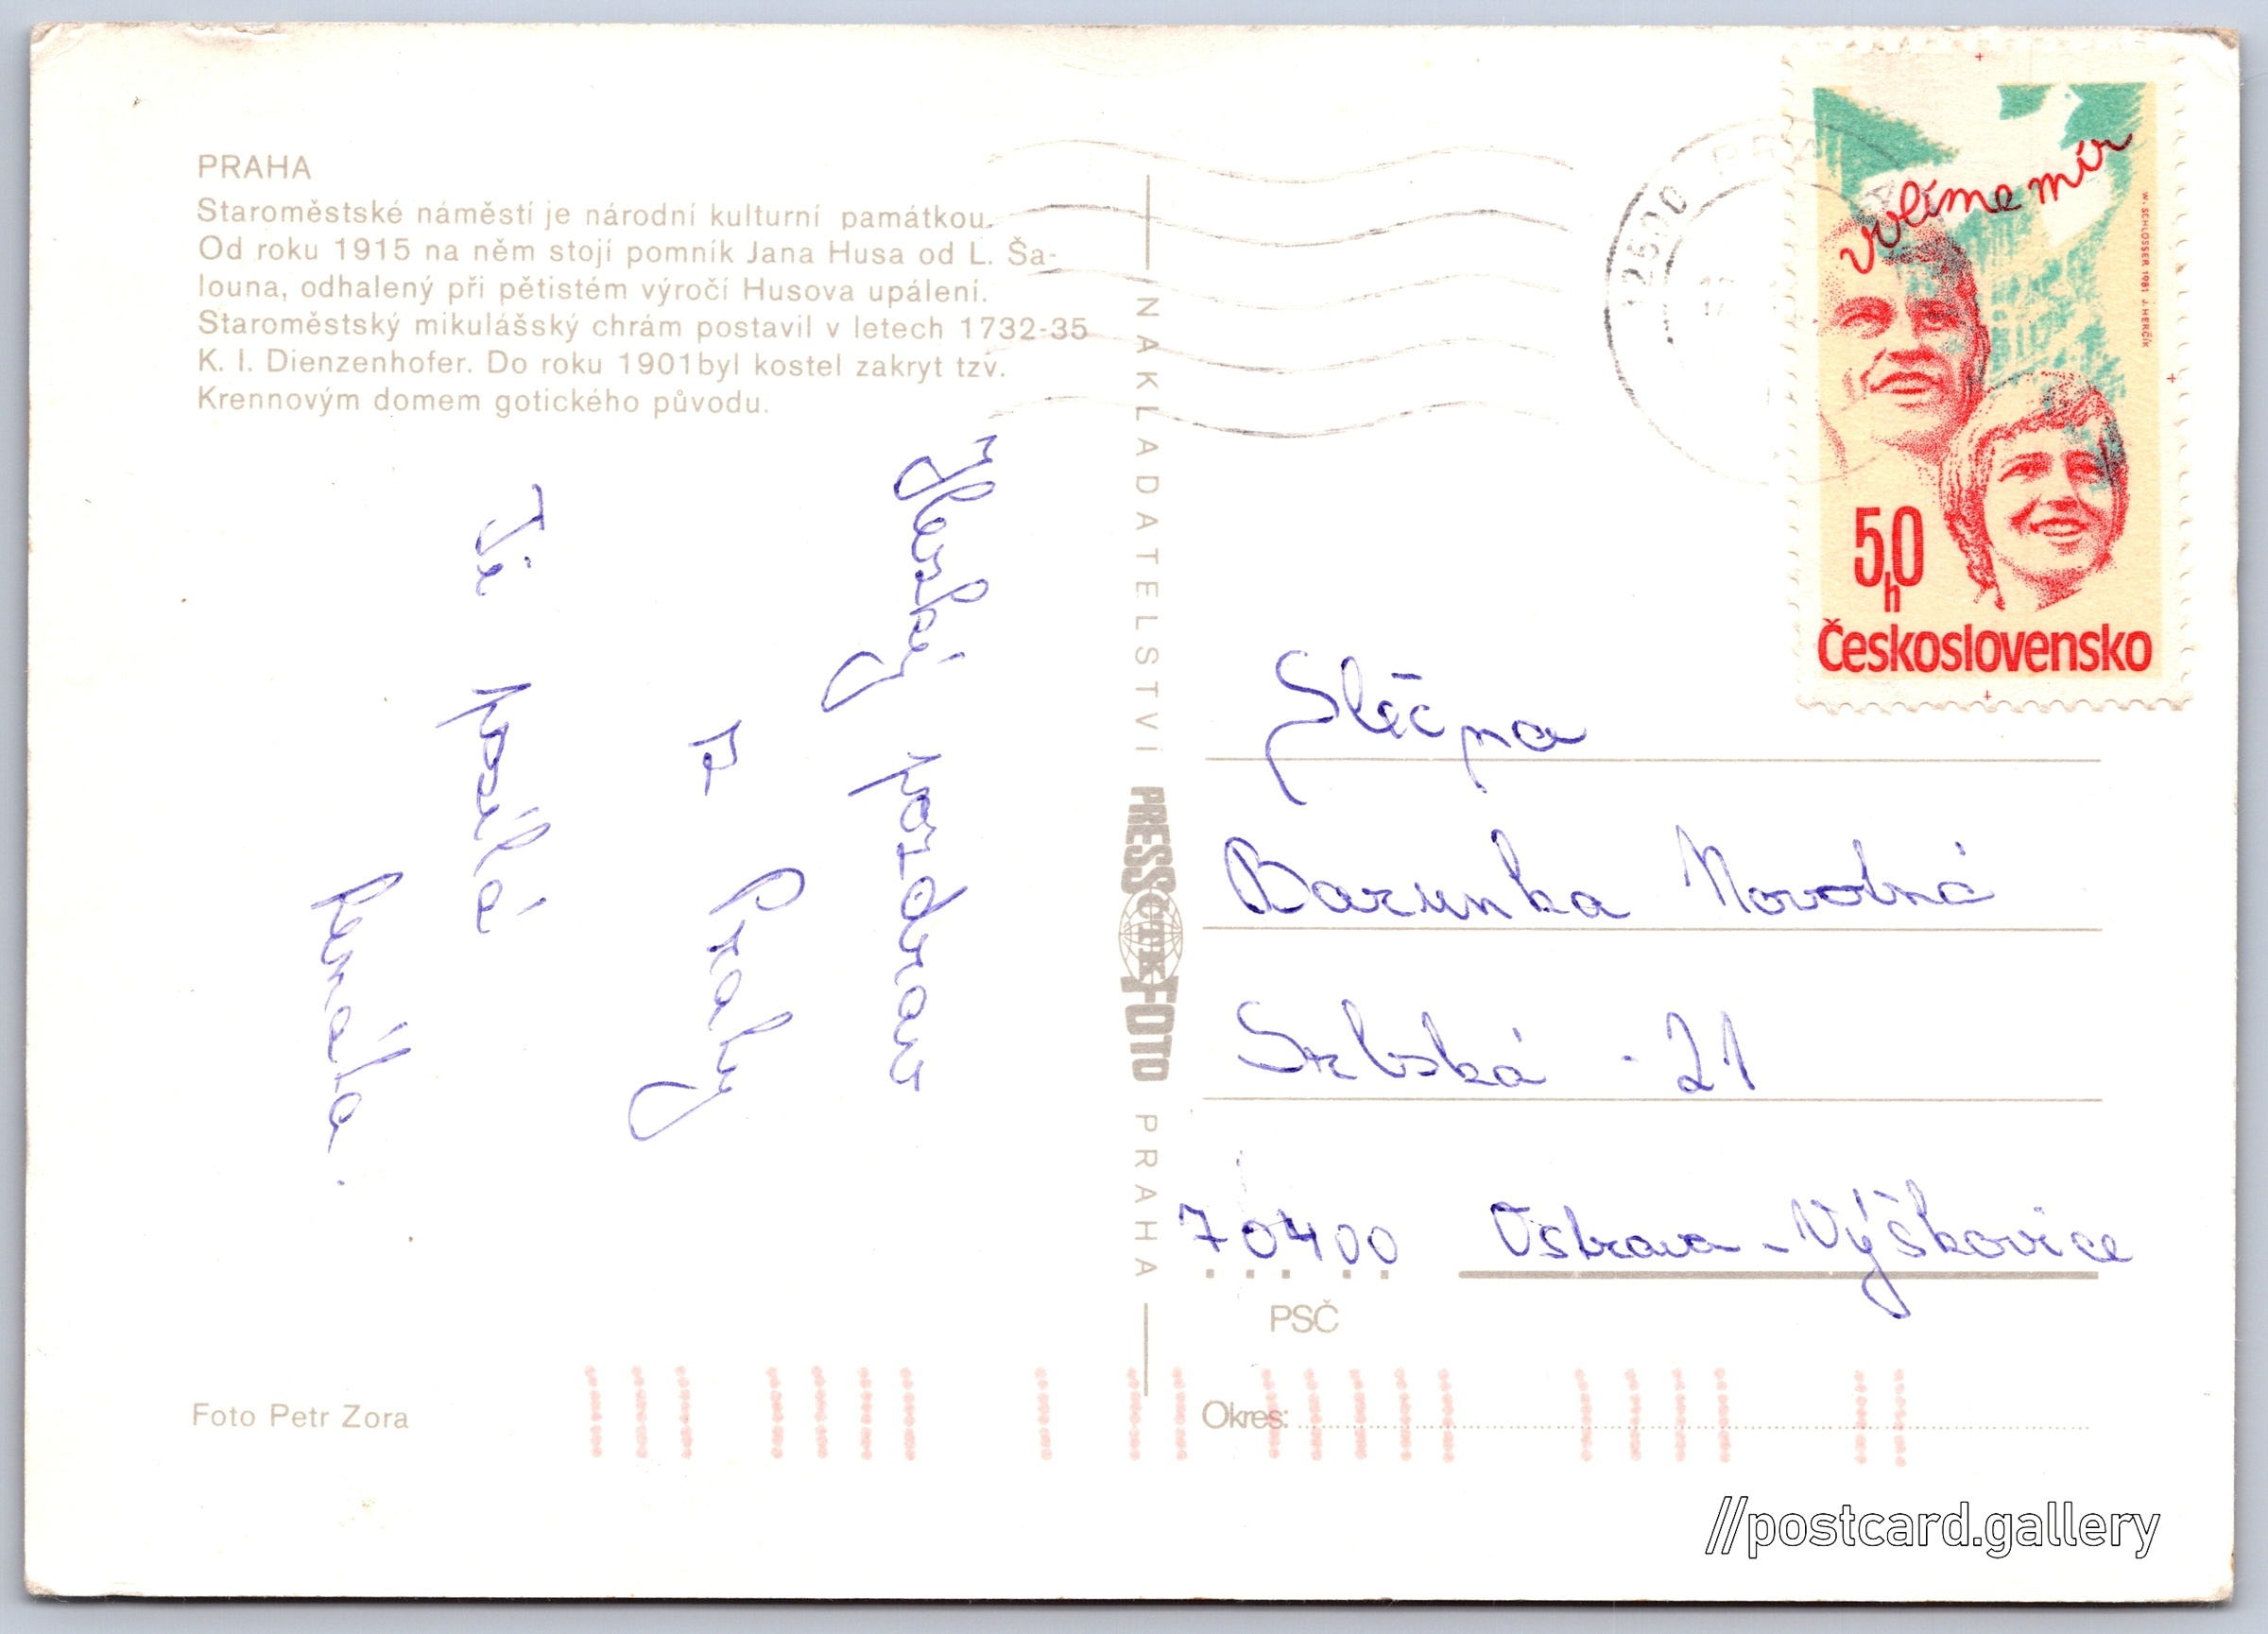 PRAHA
Staroměstské náměstí je národní kulturní památkou.
Od roku 1915 na něm stojí pomník Jana Husa od L. Ša-
louna, odhalený při pětistém výročí Husova upálení.
Staroměstský mikulášský chrám postavil v letech 1732-35
K. I. Dienzenhofer. Do roku 1901 byl kostel zakryt tzv.
Krennovým domem gotického původu.
Hezký pozdrav
z Prahy
Ti posílá
Renáta.
Foto Petr Zora
NAKLADATELSTVÍ PRESSFOTO PRAHA
ČTK
12500 PRA
volíme mír
W. SCHLOSSER 1981 J. HERČÍK
50
h
Československo
Slečna
Barunka Novotná
Srbská - 21
70400 Ostrava - Výškovice
PSČ
Okres:
//postcard.gallery